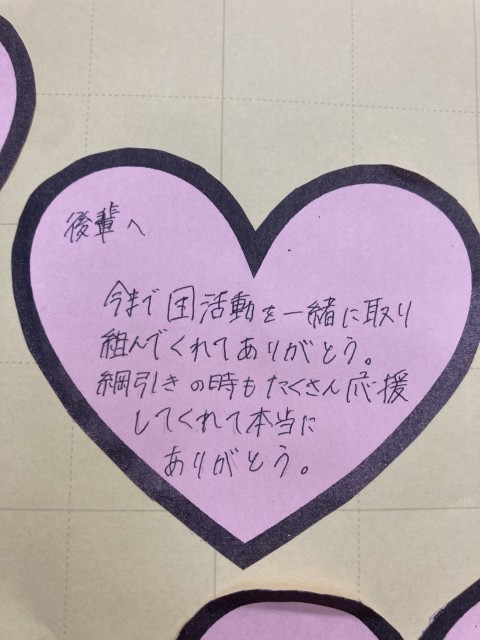 後輩へ
今まで団活動を一緒に取り
組んでくれてありがとう。
綱引きの時もたくさん応援
してくれて本当に
ありがとう。